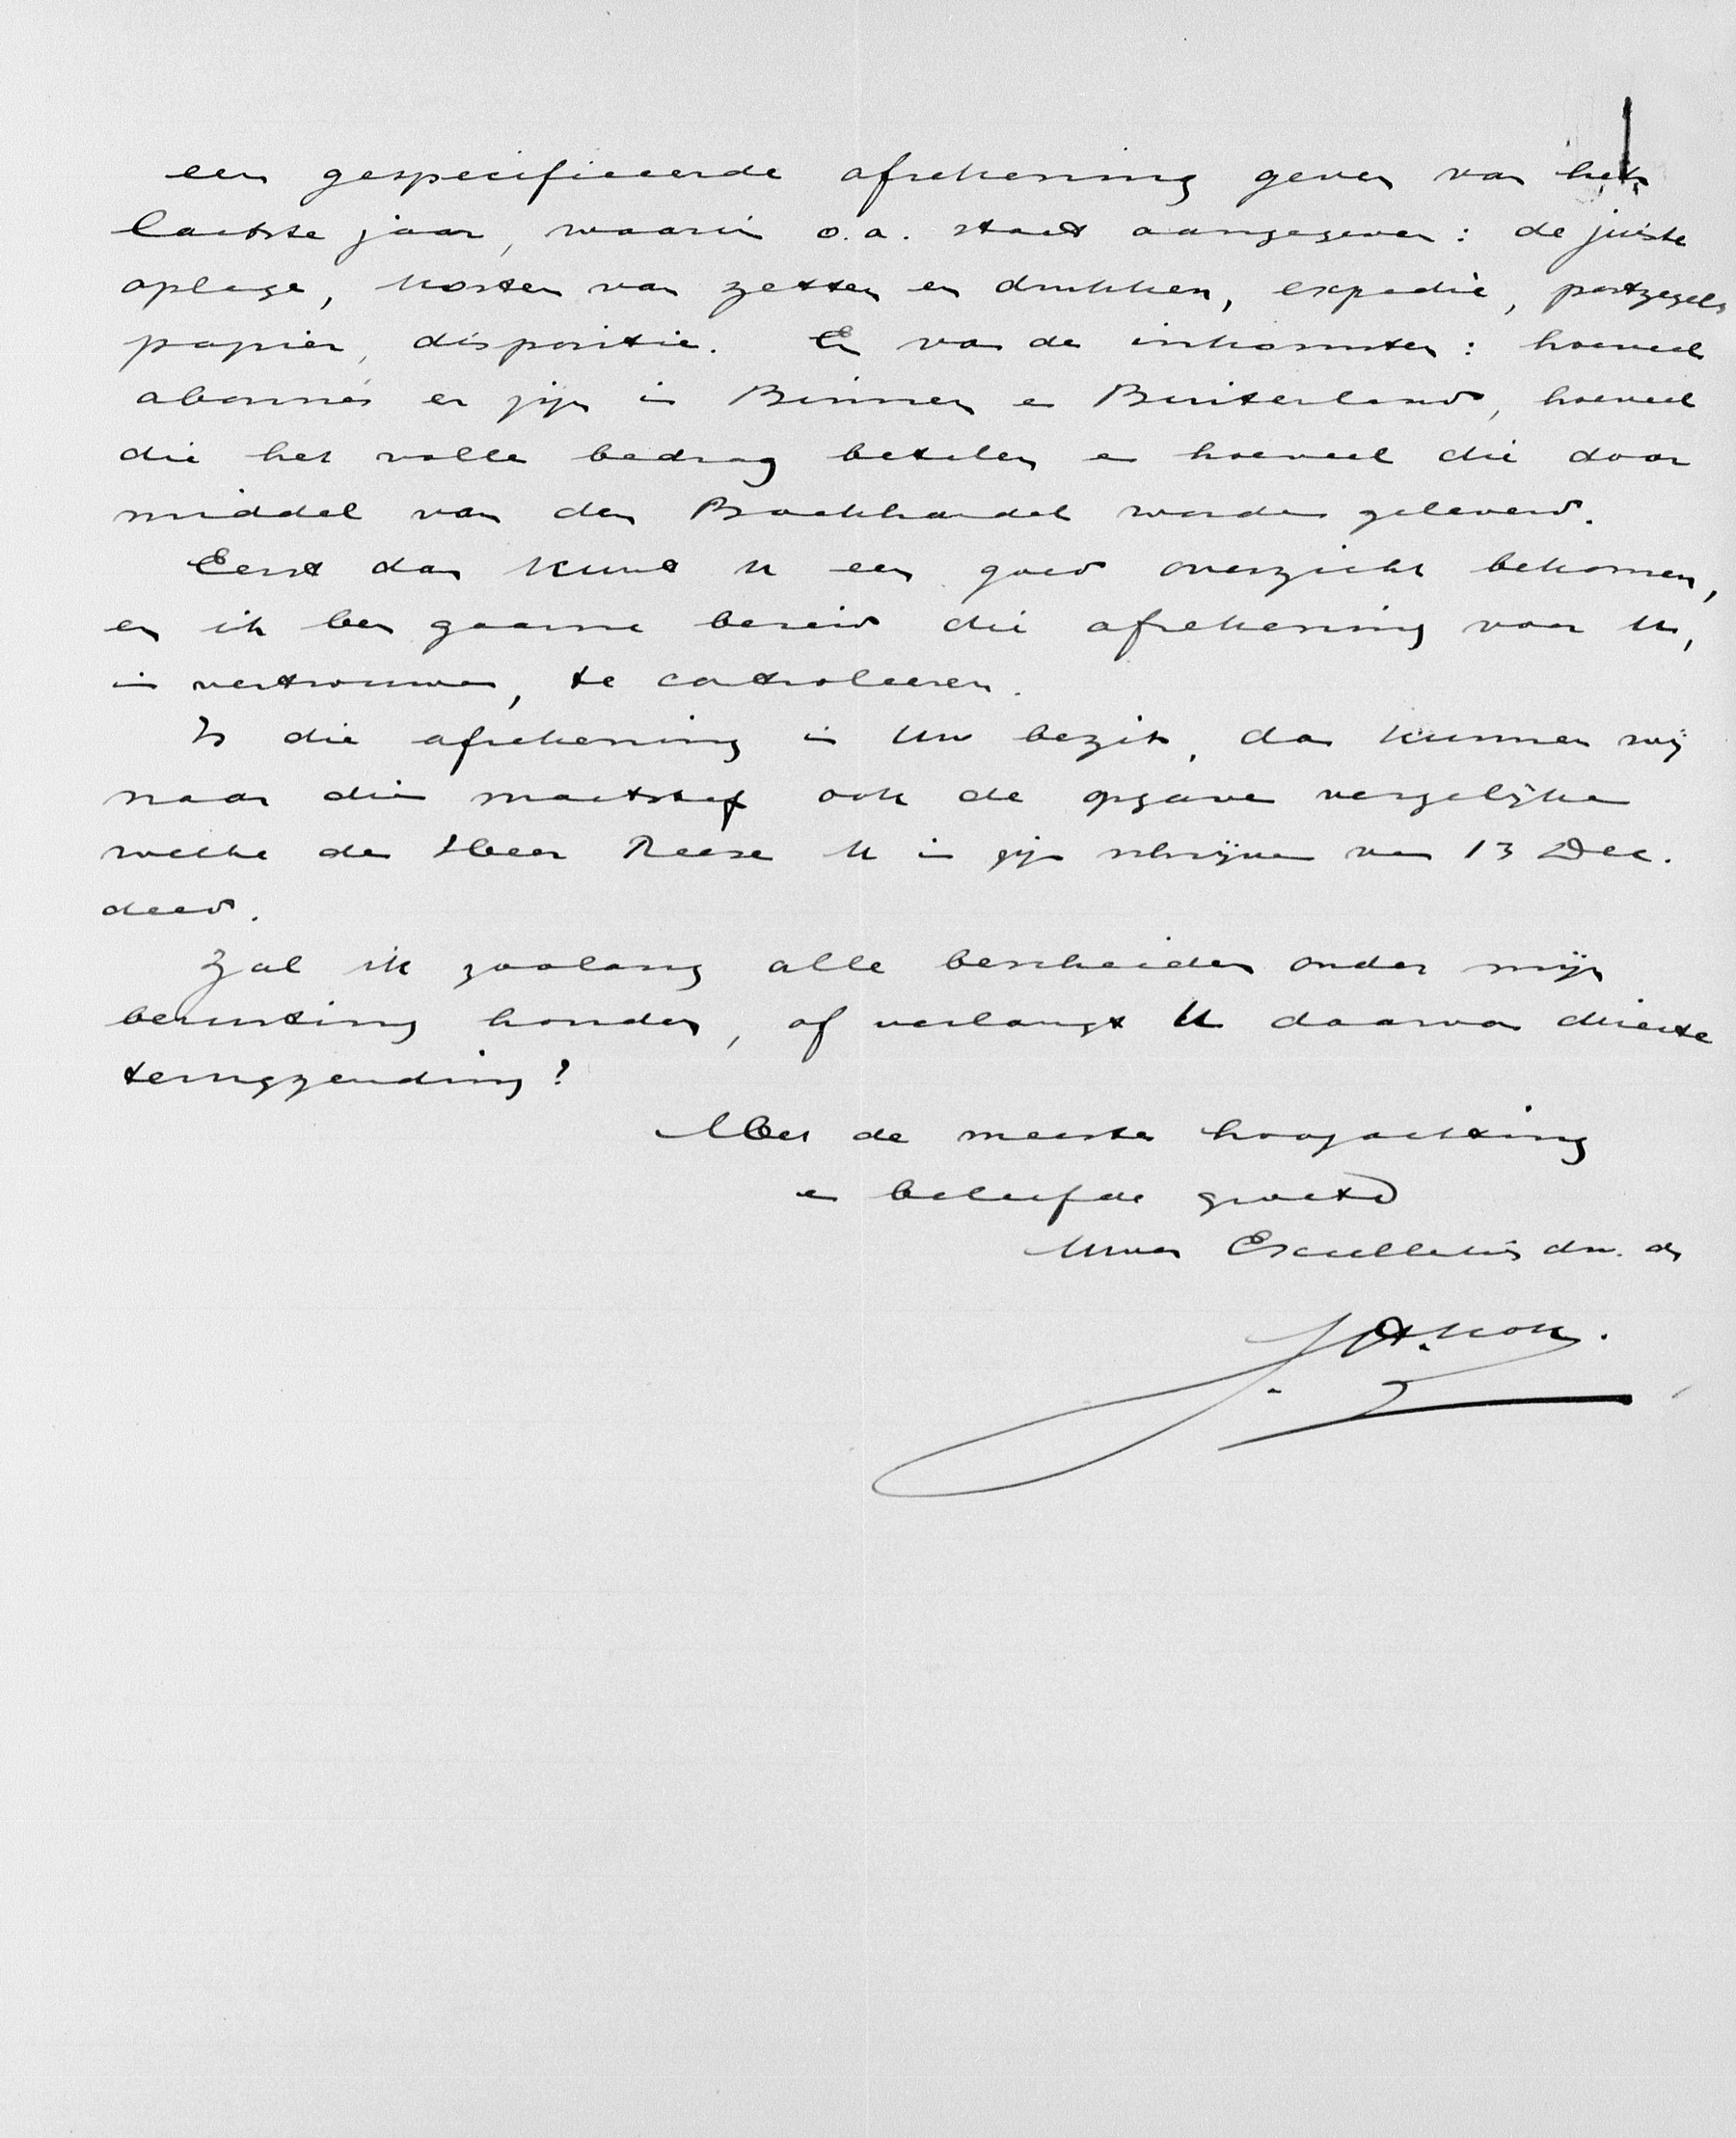 een gespecificeerde afrekening geven van het
laatste jaar, waarin o.a. staat aangegeven: de juiste
oplage, kosten van zetten en drukken, expeditie, postzegels
papier, dispositie. En van de inkomsten: hoeveel
abonné's er zijn in Binnen en Buitenland, hoeveel
die het volle bedrag betalen en hoeveel die door
middel van den Boekhandel worden geleverd.
Eerst dan kunt U een goed overzicht bekomen,
en ik ben gaarne bereid die afrekening voor U,
in vertrouwen, te controleeren.
Is die afrekening in Uw bezit, dan kunnen wij
naar dien maatstaf ook de opgave vergelijken
welke de Heer Reese U in zijn schrijven van 13 Dec.
deed.
Zal ik zoolang alle bescheiden onder mijn
berusting houden, of verlangt U daarvan directe
terugzending?
Met de meeste hoogachting
en beleefde groeten
Uwer Excellentie's dw. dr